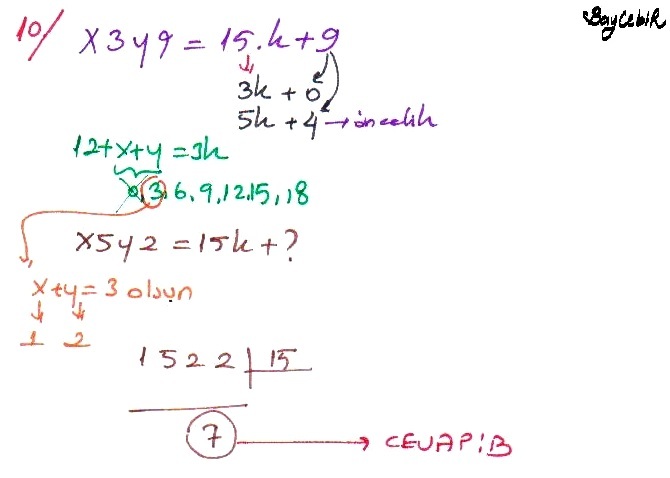 BayCebiR
10/ x3y9 = 15.k+9
3k + 0
5k + 4 → öncelik
12+x+y = 3k
0, 3, 6, 9, 12, 15, 18
x5y2 = 15k + ?
x+y = 3 olsun
1 2
1522 | 15
7 → CEVAP: B